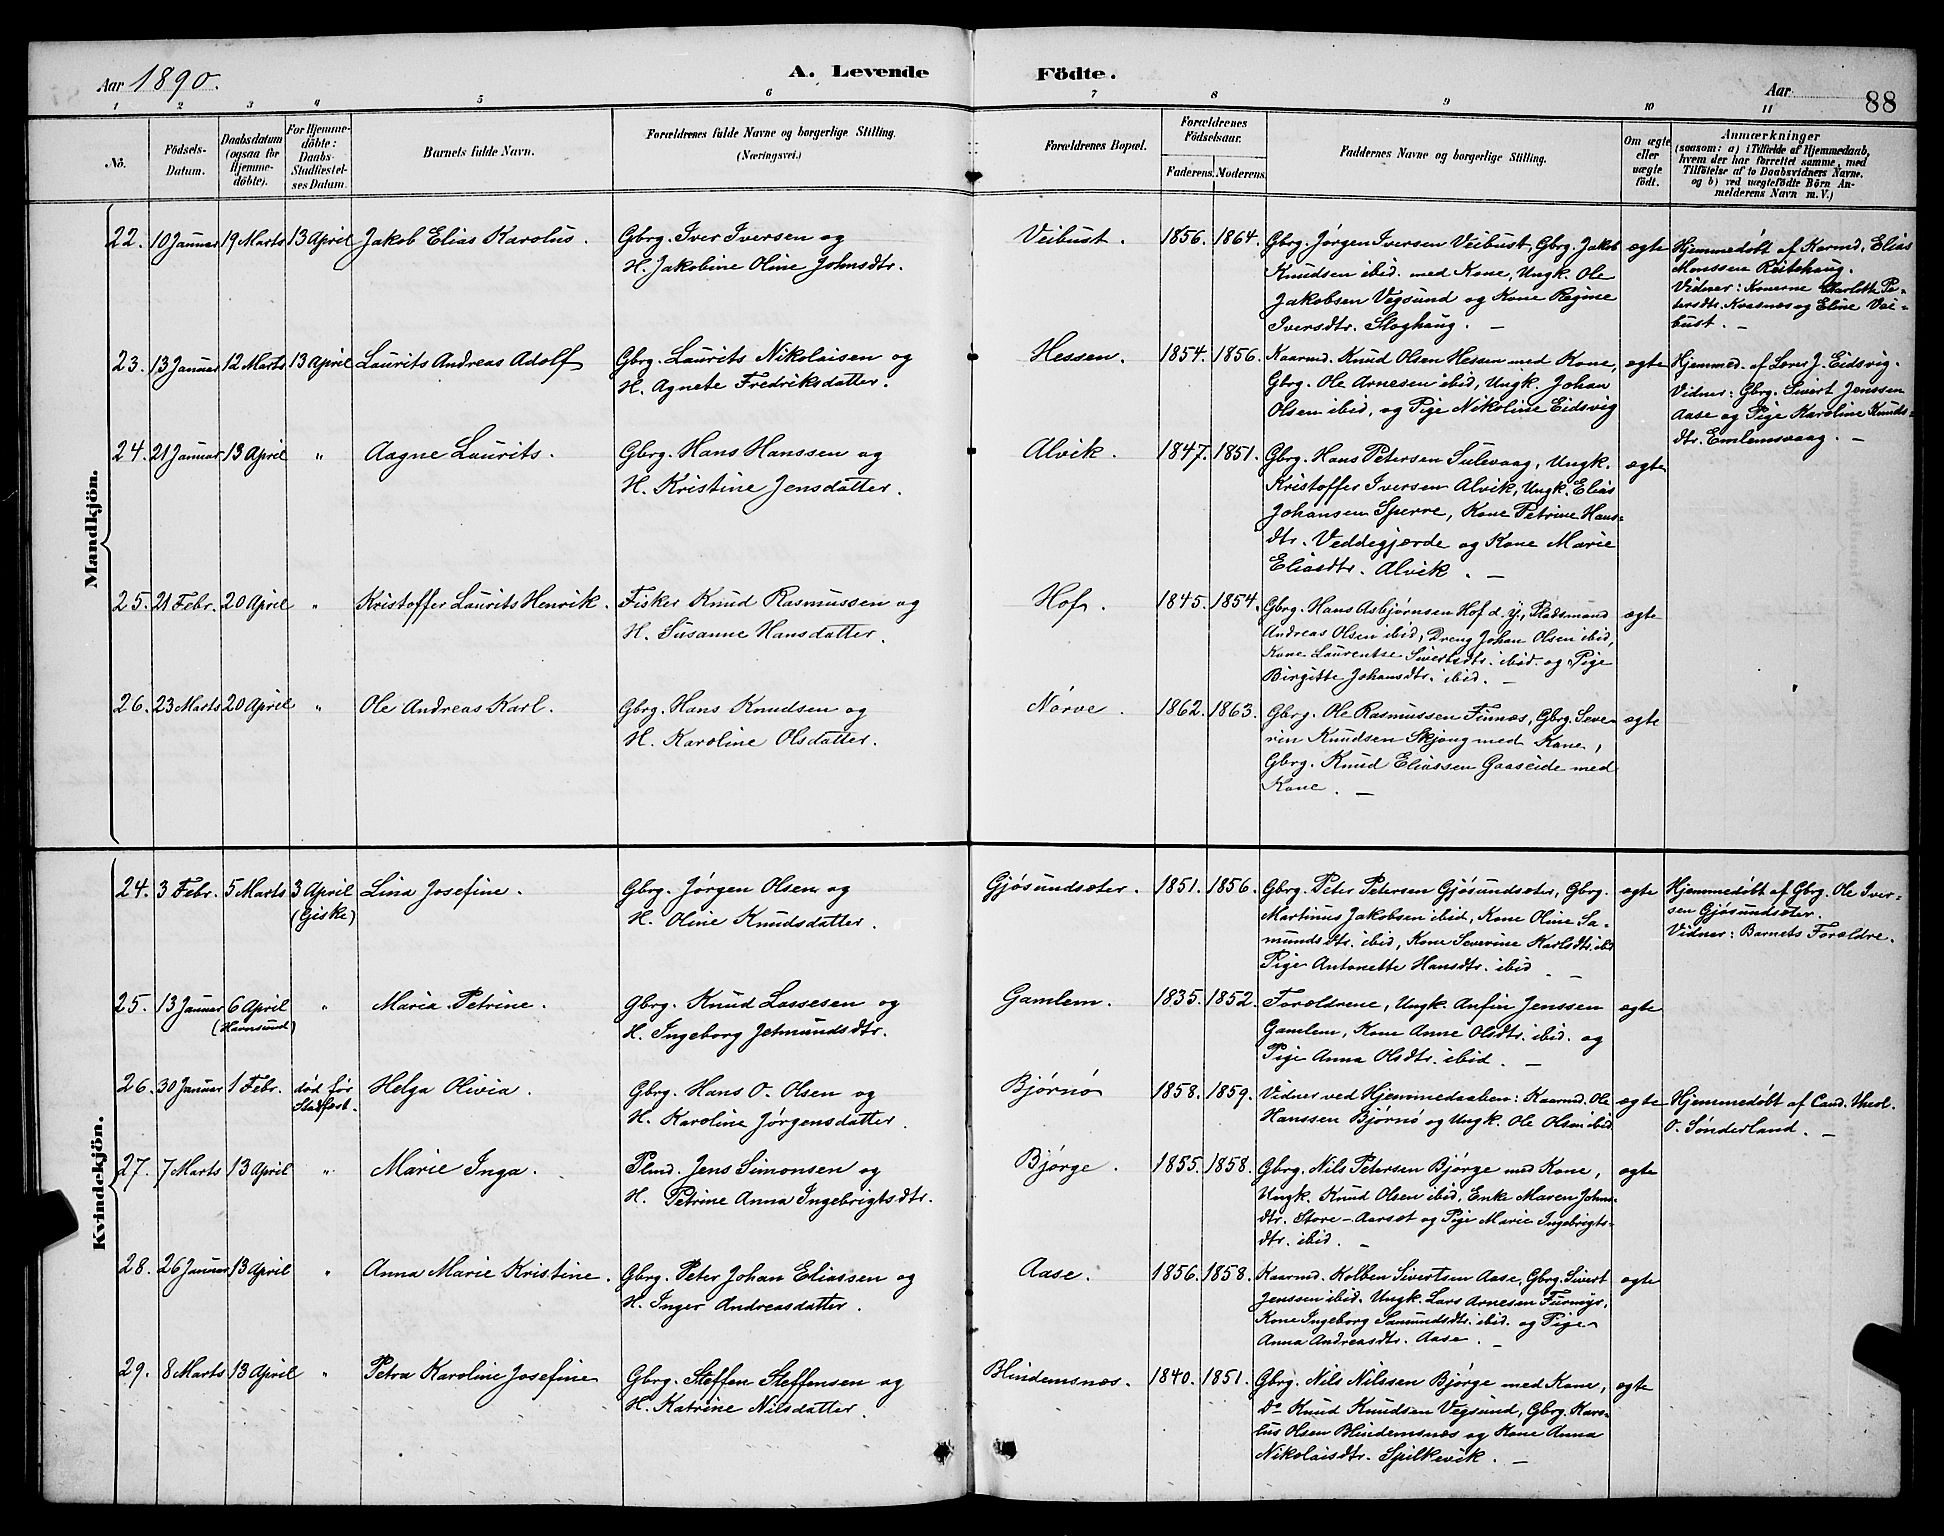 Aar 1890.
A. Levende
Födte.
Aar
88
1 2 3 4 5 6 7 8 9 10 11
No.
Födsels-
Datum.
Daabsdatum
(ogsaa for
Hjemme-
döbte).
For Hjemme-
döbte:
Daabs-
Stadfæstel-
ses Datum.
Barnets fulde Navn.
Forældrenes fulde Navne og borgerlige Stilling.
(Næringsvei.)
Forældrenes Bopæl.
Forældrenes
Födselsaar.
Faderens. Moderens.
Faddernes Navne og borgerlige Stilling.
Om ægte
eller
uægte
födt.
Anmærkninger
(saasom: a) i Tilfælde af Hjemmedaab,
hvem der har forrettet samme, med
Tilföielse af to Daabsvidners Navne.
og b) ved uægtefödte Börn An-
melderens Navn m. V.)
Mandkjön.
22. 10 Januar 19 Marts 13 April Jakob Elias Karolus.
Gbrg. Iver Iversen og
H. Jakobine Oline Johnsdtr.
Veibust. 1856. 1864.
Gbrg. Jørgen Iversen Veibust, Gbrg. Jakob
Knudsen ibid. med Kone, Ungk. Ole
Jakobsen Vegsund og Kone Regine
Iversdtr. Sloghaug. —
ægte
Hjemmedøbt af Karmd. Elias
Monssen Reitehaug.
Vidner: Konerne Charlotte Pe-
tersdtr. Kvasnæs og Eline Vei-
bust. —
23. 13 Januar 12 Marts 13 April Laurits Andreas Adolf
Gbrg. Laurits Nikolaisen og
H. Agnete Fredriksdatter.
Hessen. 1854. 1856.
Kaarmd. Knud Olsen Hessen med Kone,
Gbrg. Ole Arnesen ibid, Ungk. Johan
Olsen ibid, og Pige Nikoline Eidsvig
ægte
Hjemmed. af Lærer J. Eidsvig.
Vidner: Gbrg. Sivert Jenssen
Aase og Pige Karoline Knuds-
dtr. Emlemsvaag. —
24. 21 Januar 13 April " Aagne Laurits.
Gbrg. Hans Hanssen og
H. Kristine Jensdatter.
Alvik. 1847. 1851.
Gbrg. Hans Petersen Sulevaag, Ungk.
Kristoffer Iversen Alvik, Ungk. Elias
Johansen Sperre, Kone Petrine Hans-
dtr. Veddegjærde og Kone Marie
Eliasdtr. Alvik. —
ægte
25. 21 Febr. 20 April " Kristoffer Laurits Henrik.
Fisker Knud Rasmussen og
H. Susanne Hansdatter.
Hof. 1845. 1854.
Gbrg. Hans Asbjørnsen Hof d.y., Pladsmand
Andreas Olsen ibid, Dreng Johan Olsen ibid,
Kone Laurentse Sivertsdtr. ibid. og Pige
Birgitte Johansdtr. ibid. —
ægte
26. 23 Marts 20 April " Ole Andreas Karl.
Gbrg. Hans Knudsen og
H. Karoline Olsdatter.
Nørve. 1862. 1863.
Gbrg. Ole Rasmussen Finnæs, Gbrg. Seve-
rin Knudsen Skjong med Kone,
Gbrg. Knud Eliassen Gaaseide med
Kone. —
ægte
Kvindekjön.
24. 3 Febr. 5 Marts 3 April
(Giske)
Lina Josefine.
Gbrg. Jørgen Olsen og
H. Oline Knudsdatter.
Gjøsundsæter. 1851. 1856.
Gbrg. Peter Petersen Gjøsundsæter, Gbrg.
Martinus Jakobsen ibid, Kone Oline Sa-
mundsdtr. ibid, Kone Severine Karlsdtr. ibid
Pige Antonette Hansdtr. ibid. —
ægte
Hjemmedøbt af Gbrg. Ole Iver-
sen Gjøsundsæter.
Vidner: Barnets Forældre.
25. 13 Januar 6 April
(Havnsund)
" Maria Petrine.
Gbrg. Knud Lassesen og
H. Ingeborg Jetmundsdtr.
Gamlem. 1835. 1852.
Forældrene, Ungk. Anfin Jenssen
Gamlem, Kone Anne Olsdtr. ibid. og
Pige Anna Olsdtr. ibid. —
ægte
26. 30 Januar 1 Febr. død før
Stadfæst.
Helga Olivia.
Gbrg. Hans O. Olsen og
H. Karoline Jørgensdatter.
Bjørnø 1858. 1859.
Vidner ved Hjemmedaaben: Kaarmd. Ole
Hanssen Bjørnø og Ungk. Ole Olsen ibid
ægte
Hjemmedøbt af Cand. theol.
O. Sønderland. —
27. 7 Marts 13 April " Marie Inga.
Plmd. Jens Simonsen og
H. Petrine Anna Ingebrigtsdtr.
Bjørge. 1855. 1858.
Gbrg. Nils Petersen Bjørge med Kone,
Ungk. Knud Olsen ibid, Enke Maren Johns-
dtr. Store-Aarset og Pige Marie Ingebrigts-
dtr. ibid. —
ægte
28. 26 Januar 13 April " Anna Marie Kristine.
Gbrg. Peter Johan Eliassen og
H. Inger Andreasdatter.
Aase. 1856. 1858.
Kaarmd. Kolben Sivertsen Aase, Gbrg. Sivert
Jenssen ibid. Ungk. Lars Arnesen Furmyr,
Kone Ingeborg Samundsdtr. ibid. og Pige
Anna Andreasdtr. Aase. —
ægte
29. 8 Marts 13 April " Petra Karoline Josefine
Gbrg. Steffen Steffensen og
H. Katrine Nilsdatter.
Blindemsnæs. 1840. 1851.
Gbrg. Nils Nilssen Bjørge med Kone,
Do Knud Knudsen Vegsund, Gbrg. Karo-
lus Olsen Blindemsnæs og Kone Anna
Nikolaisdtr. Spilkevik. —
ægte